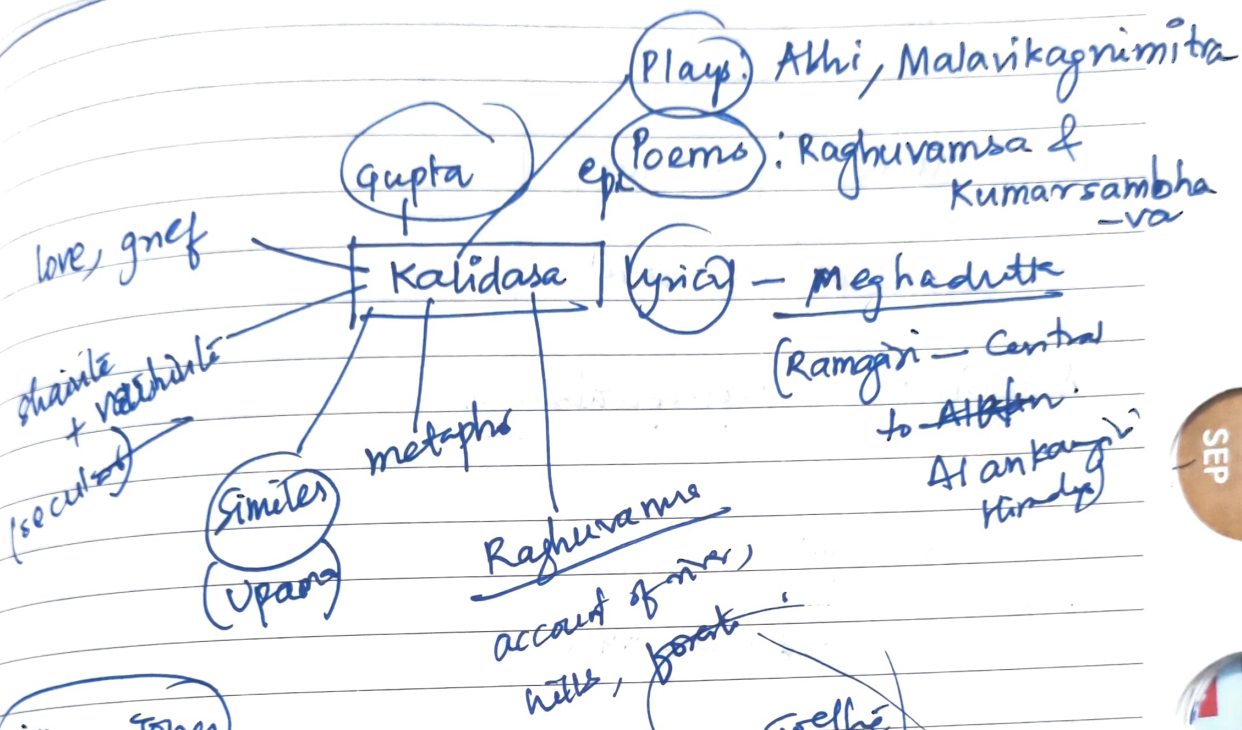 Plays: Abhi, Malavikagnimitra
epi Poems: Raghuvamsa &
Kumarsambha
-va
Gupta
love, grief
Kalidasa
lyrical - Meghadutta
(Ramgiri - Central
to
Alankangiri
shaivite
+ vaishivite
(secular)
metaphor
Similes
(Upama)
Raghuvamsa
account of river,
hills, forest
Goethe
SEP